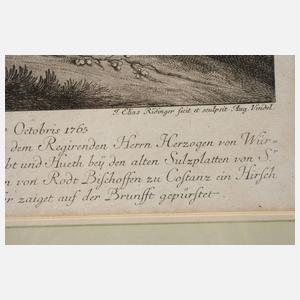 J. Elias Ridinger fecit et sculpsit Aug. Vindel.
Octobris 1765
dem Regirenden Herrn Herzogen von Wür-
bt und Hueth beÿ den alten Sulzplatten von S:
n von Rodt Bischoffen zu Costanz ein Hirsch
ir zaiget auf der Brunfft gepürstet